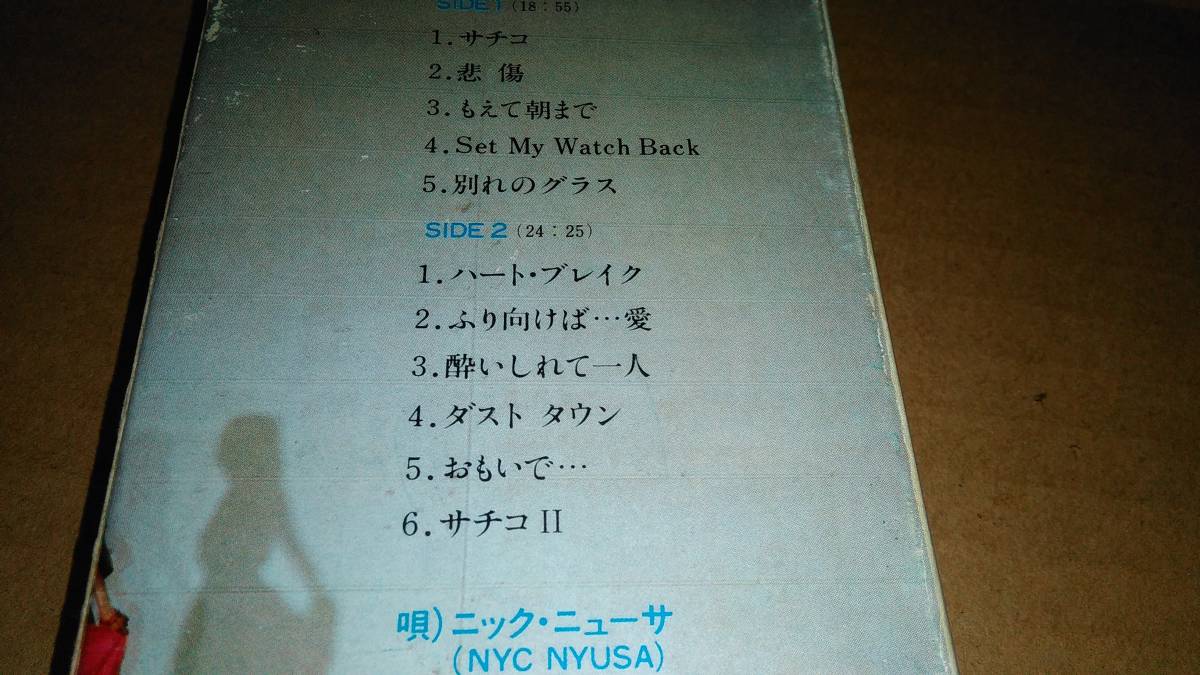 SIDE 1 (18:55)
1.サチコ
2.悲 傷
3.もえて朝まで
4.Set My Watch Back
5.別れのグラス
SIDE 2 (24:25)
1.ハート・ブレイク
2.ふり向けば…愛
3.酔いしれて一人
4.ダスト タウン
5.おもいで…
6.サチコ II
唄)ニック・ニューサ
(NYC NYUSA)